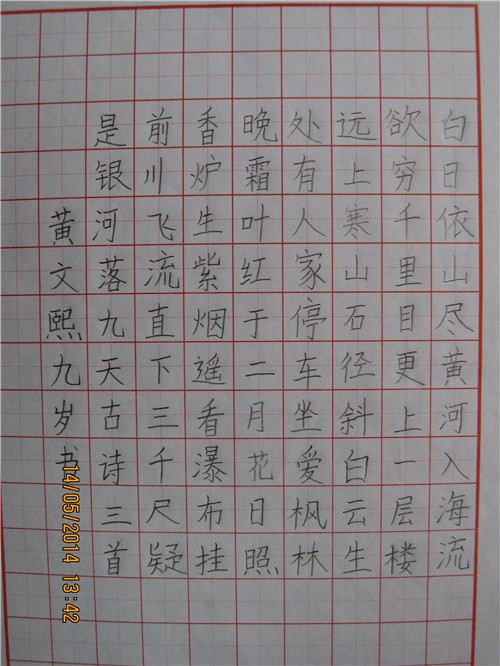 白日依山尽黄河入海流
欲穷千里目更上一层楼
远上寒山石径斜白云生
处有人家停车坐爱枫林
晚霜叶红于二月花日照
香炉生紫烟遥看瀑布挂
前川飞流直下三千尺疑
是银河落九天古诗三首
黄文熙九岁书
14/05/2014 13:42